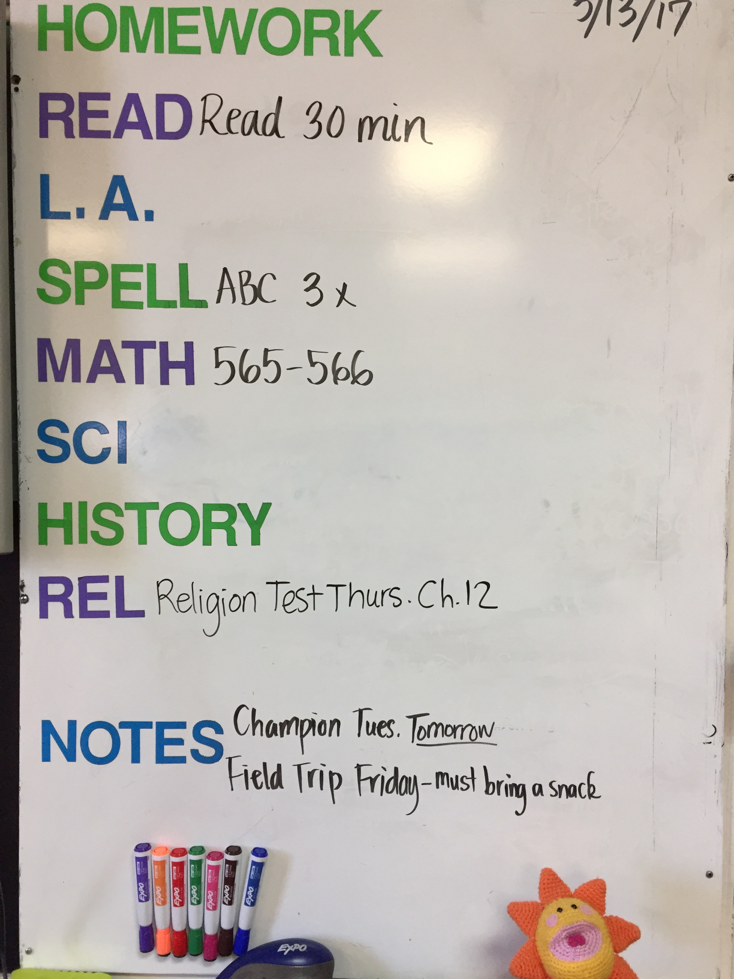 HOMEWORK
READ Read 30 min
L.A.
SPELL ABC 3x
MATH 565-566
SCI
HISTORY
REL Religion Test Thurs. Ch.12
NOTES Champion Tues. Tomorrow
Field Trip Friday-must bring a snack
EXPO EXPO EXPO EXPO EXPO EXPO EXPO
EXPO